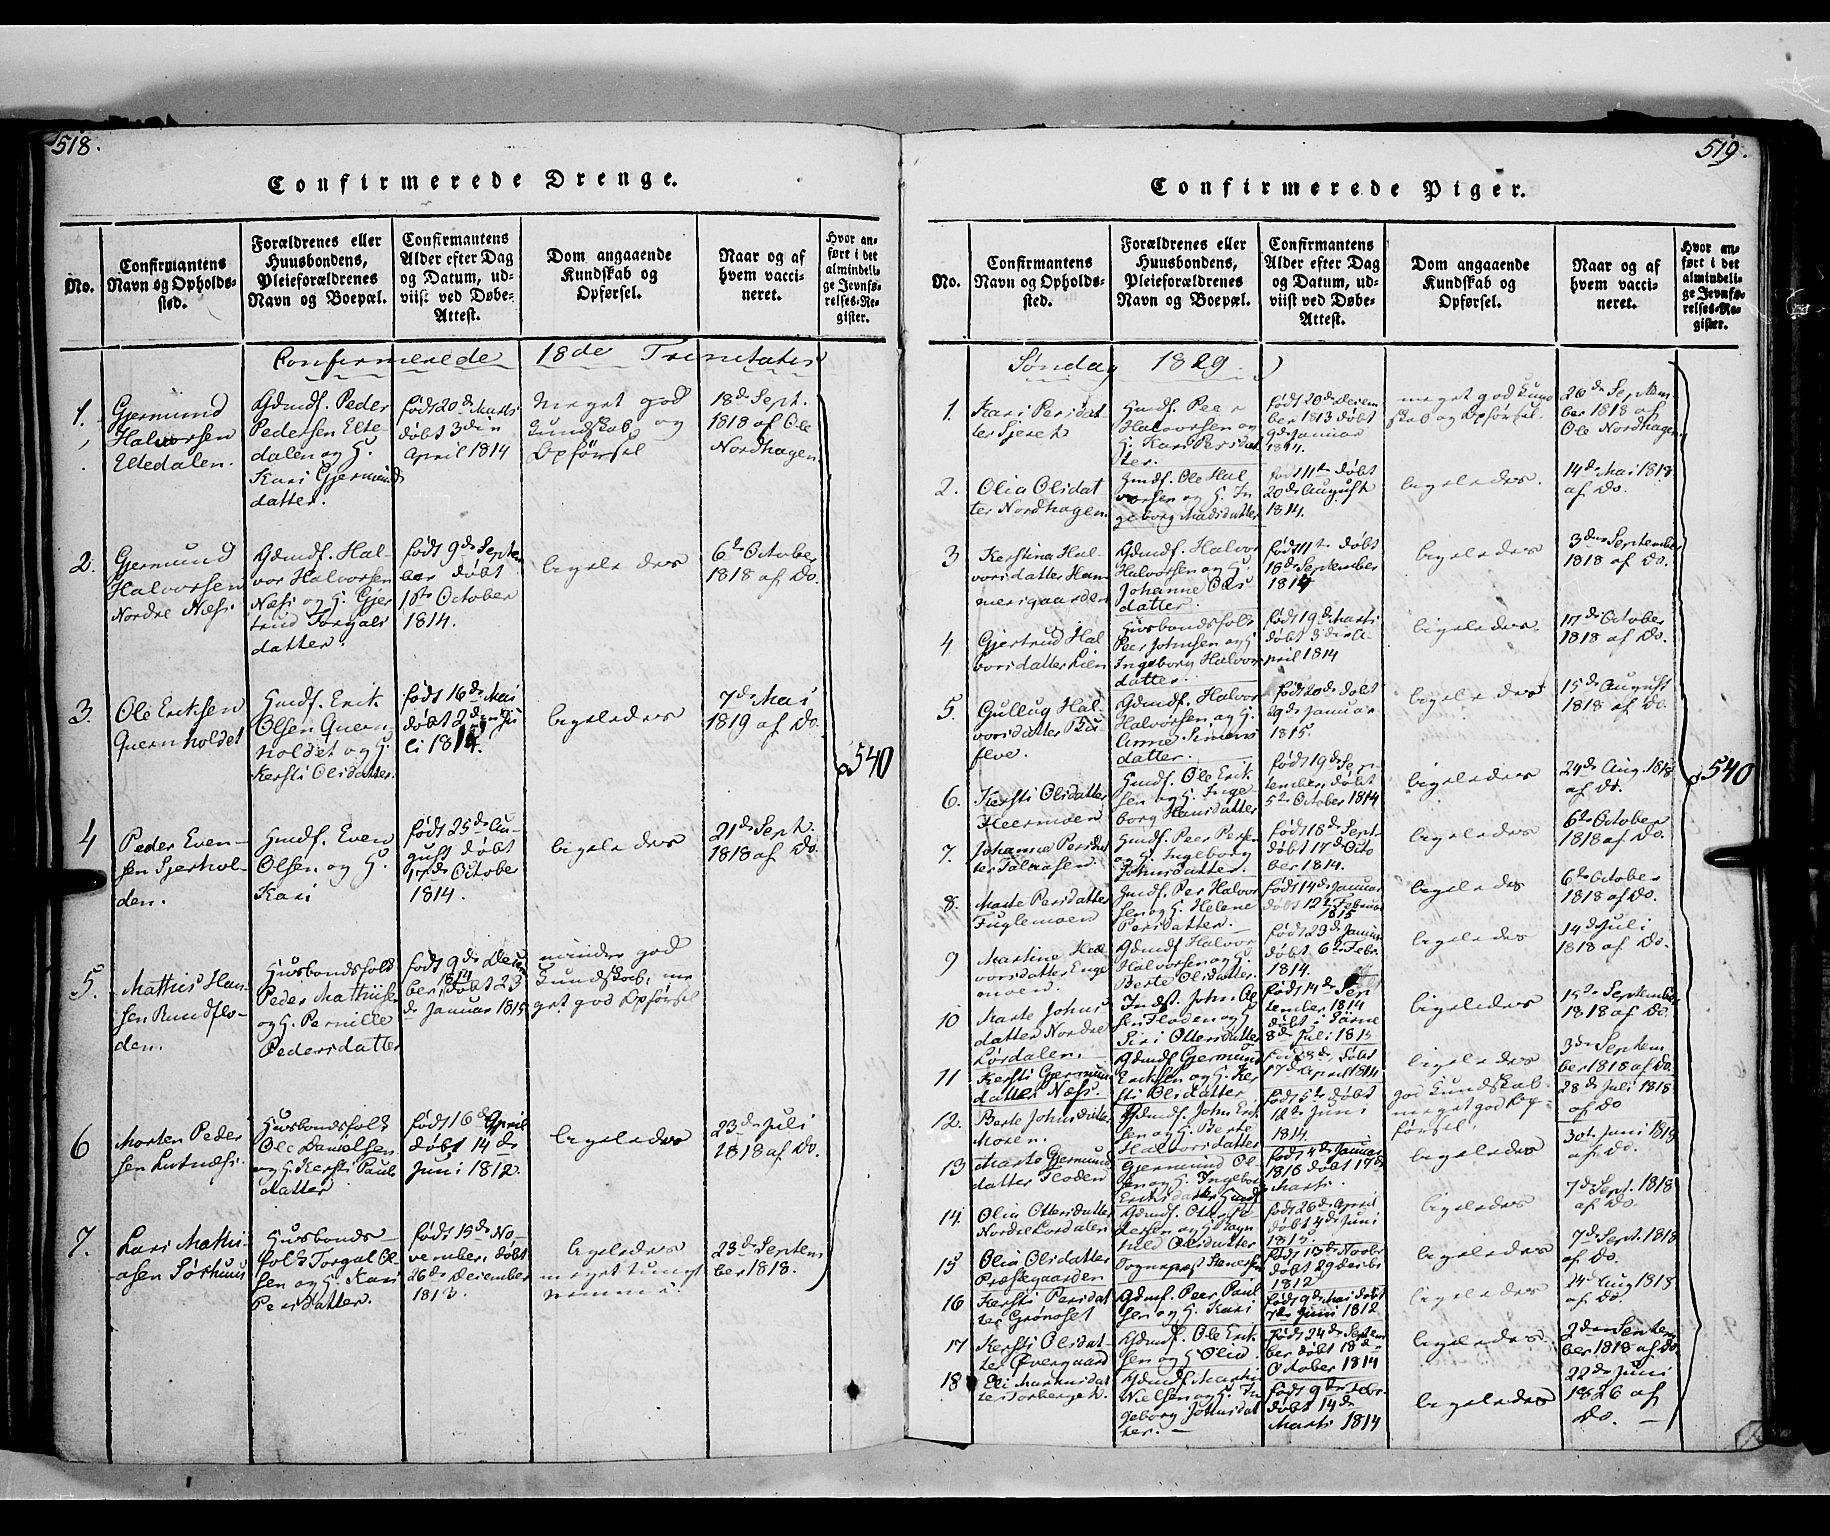 518.
Confirmerede Drenge.
No.
Confirmantens
Navn og Opholds-
sted.
Forældrenes eller
Huusbondens,
Pleieforældrenes
Navn og Boepæl.
Confirmantens
Alder efter Dag
og Datum, ud-
viist ved Døbe-
Attest.
Dom angaaende
Kundskab og
Opførsel.
Naar og af
hvem vacci-
neret.
Hvor an-
ført i det
almindeli-
ge Jevnfø-
relses-Re-
gister.
Confirmerede 18de Trinitatis
1.
Gjermund
Halvorsen
Eltedalen.
Gdmdf. Peder
Pedersen Elte-
dalen og H.
Kari Gjermunds
datter.
født 20de Marts
døbt 3die
April 1814
Meget god
Kundskab og
Opførsel
18de Sept.
1818 af Ole
Nordhagen
2.
Gjermund
Halvorsen
Nordre Næss
Gdmdf. Hal-
vor Halvorsen
Næss og H. Gjer
trud Torgals
datter.
født 9de Septem
ber døbt
1ste October
1814.
ligeledes
6te October
1818 af Do.
3.
Ole Eriksen
Quernholdet
Hmdf. Erik
Olsen Quern
holdet og H.
Kersti Olsdatter.
født 16de Mai
døbt 2den Ju
li 1814.
ligeledes
7de Mai
1819 af Do.
540
4
Peder Even-
sen Sjerhol-
den.
Hmdf. Even
Olsen og H.
Kari
født 25de Au-
gust døbt
17de October
1814.
ligeledes
21de Sept.
1818 af Do.
5.
Mathis Han-
sen Rundflo-
den.
Husbondsfolk
Peder Mathisen
og H. Pernille
Pedersdatter
født 9de Decem
ber 1814 døbt 23
de Januar 1815
minder god
Kundskab, me
get god Opførsel
6
Morten Peder
sen Lutnæss
Husbondsfolk
Ole Danielsen
og H. Kersti Pauls
datter
født 16de April
døbt 14de
Juni 1812.
ligeledes
23de Juli
1818 af Do.
7.
Lars Mathi-
asen Sørhuus
Husbonds-
folk Torgal Ol-
sen og H. Kari
Persdatter.
født 15de No-
vember, døbt
26de December
1813.
ligeledes
meget tungt
nemme.
23de Septem
ber 1818.
519.
Confirmerede Piger.
No.
Confirmantens
Navn og Opholds-
sted.
Forældrenes eller
Huusbondens,
Pleieforældrenes
Navn og Boepæl.
Confirmantens
Alder efter Dag
og Datum, ud-
viist ved Døbe-
Attest.
Dom angaaende
Kundskab og
Opførsel.
Naar og af
hvem vacci-
neret.
Hvor an-
ført i det
almindeli-
ge Jevnfø-
relses-Re-
gister.
Søndag 1829.
1.
Kari Persdat
ter Sjeret
Hmdf. Peer
Halvorsen og
H. Kari Persdat
ter.
født 20de Decem
ber 1813 døbt
9de Januar
1814.
meget god Kund
skab og Opførsel.
26de Septem
ber 1818 af
Ole Nordhagen
2.
Olia Olsdat
ter Nordhagen.
Hmdf. Ole Hal
vorsen og H. In
geborg Madsdatter
født 11te døbt
20de August
1814.
ligeledes.
14de Mai 1818
af Do.
3
Kerstina Hal-
vorsdatter Ham
mersgaarden
Gdmdf. Halvor
Halvorsen og H.
Johanne Ols
datter.
født 11te døbt
18de September
1814
ligeledes
3die September
1818 af Do.
4
Gjertrud Hal
vorsdatter Lien
Husbondsfolk
Peer Johnsen og H.
Ingeborg Halvors
datter.
født 19de Marts
døbt 3die A-
pril 1814
ligeledes.
17de October
1818 af Do.
5.
Gullug Hal
vorsdatter Bu
flve.
Gdmdf. Halvor
Halvorsen og H.
Anne Simens
datter.
født 20de døbt
29de Januar
1815.
ligeledes
15de August
1818 af Do.
6.
Kersti Olsdatter
Heermoen
Hmdf. Ole Erik
sen og H. Inge
borg Hansdatter
født 19de Sep
tember, døbt
5te October 1814
ligeledes
24de Aug. 1818
af Do.
540
7.
Johanne Persdat
ter Talaasen.
Hmdf. Peer Persen
og H. Ingeborg
Johnsdatter.
født 18de Sept.
døbt 17de Octo
ber 1814.
ligeledes
6te October
1818 af Do.
8.
Marte Persdatter
Fuglemoen
Hmdf. Per Halvor
sen og H. Helene
Persdatter.
født 14de Januar
døbt 12te Februar
1815
ligeledes
6te October
1818 af Do.
9
Martine Hal
vorsdatter Enge
moen.
Gdmdf. Halvor
Halvorsen og H.
Berte Olsdatter.
født 23de Januar
døbt 6te Febr.
1814.
ligeledes
14de Juli
1818 af Do.
10
Marte Johns
datter Nordre
Lørdalen.
Indst. John Ol
sen Floden og H
Siri Ottersdatter
født 14de Sep
tember 1814
døbt i Särne
8de Juli 1815
ligeledes
15te September
1818 af Do.
11
Kersti Gjermun
datter Næss.
Gdmdf. Gjermund
Ericksen og H. Ker
sti Olsdatter
født 8de, døbt
17de April 1814
ligeledes
3die Septem
ber 1818 af Do.
12.
Berte Johnsdatter
Moren.
Gdmdf. John Erik
sen og H. Berte
Halvorsdatter
født 5te døbt
12te Juni
1814.
god Kundskab
meget god Op-
førsel.
28de Juli 1818
af Do
13
Marte Gjermund
datter Floden
Gjermund Ol
sen og H. Ingebor
Eriksdatter Hmdf.
født 4de Januar
1816 døbt 17de
Marts.
ligeledes
30te Juni 1818
af Do.
14.
Olia Ottersdatter
Nordre Lørdalen
Gdmdf. Otter Pe
dersen og H. Ragn
hild Olsdatter
født 26de April
døbt 4de Juni
1815.
ligeledes
7de Sept. 1818
af Do.
15
Olia Olsdatter
Præstegaarden
Sognepræst Stenersen
født 13de Novbr
døbt 29de Decbr
1812
ligeledes
7de Sept. 1818
af Do.
16
Kersti Persdat
ter Grønoset
Gdmdf. Peer Paul
sen og H. Kari
født 9de Mai døbt
7de Juni 1812
ligeledes
24de Aug 1818
af Do.
17
Kersti Olsdat-
ter Øvergaard
Gdmdf. Ole Erik
sen og H Olia
født 24de Septem
ber døbt 18de
October 1814
ligeledes
2den Septem
ber 1818 af Do.
18
Eli Martinsdat
ter Torberget.
Gdmdf. Martin
Nielsen og H. In
geborg Johnsdat
ter.
født 9de Febr.
døbt 14de
Marts 1814
ligeledes
22de Juni
1826 af
Do.